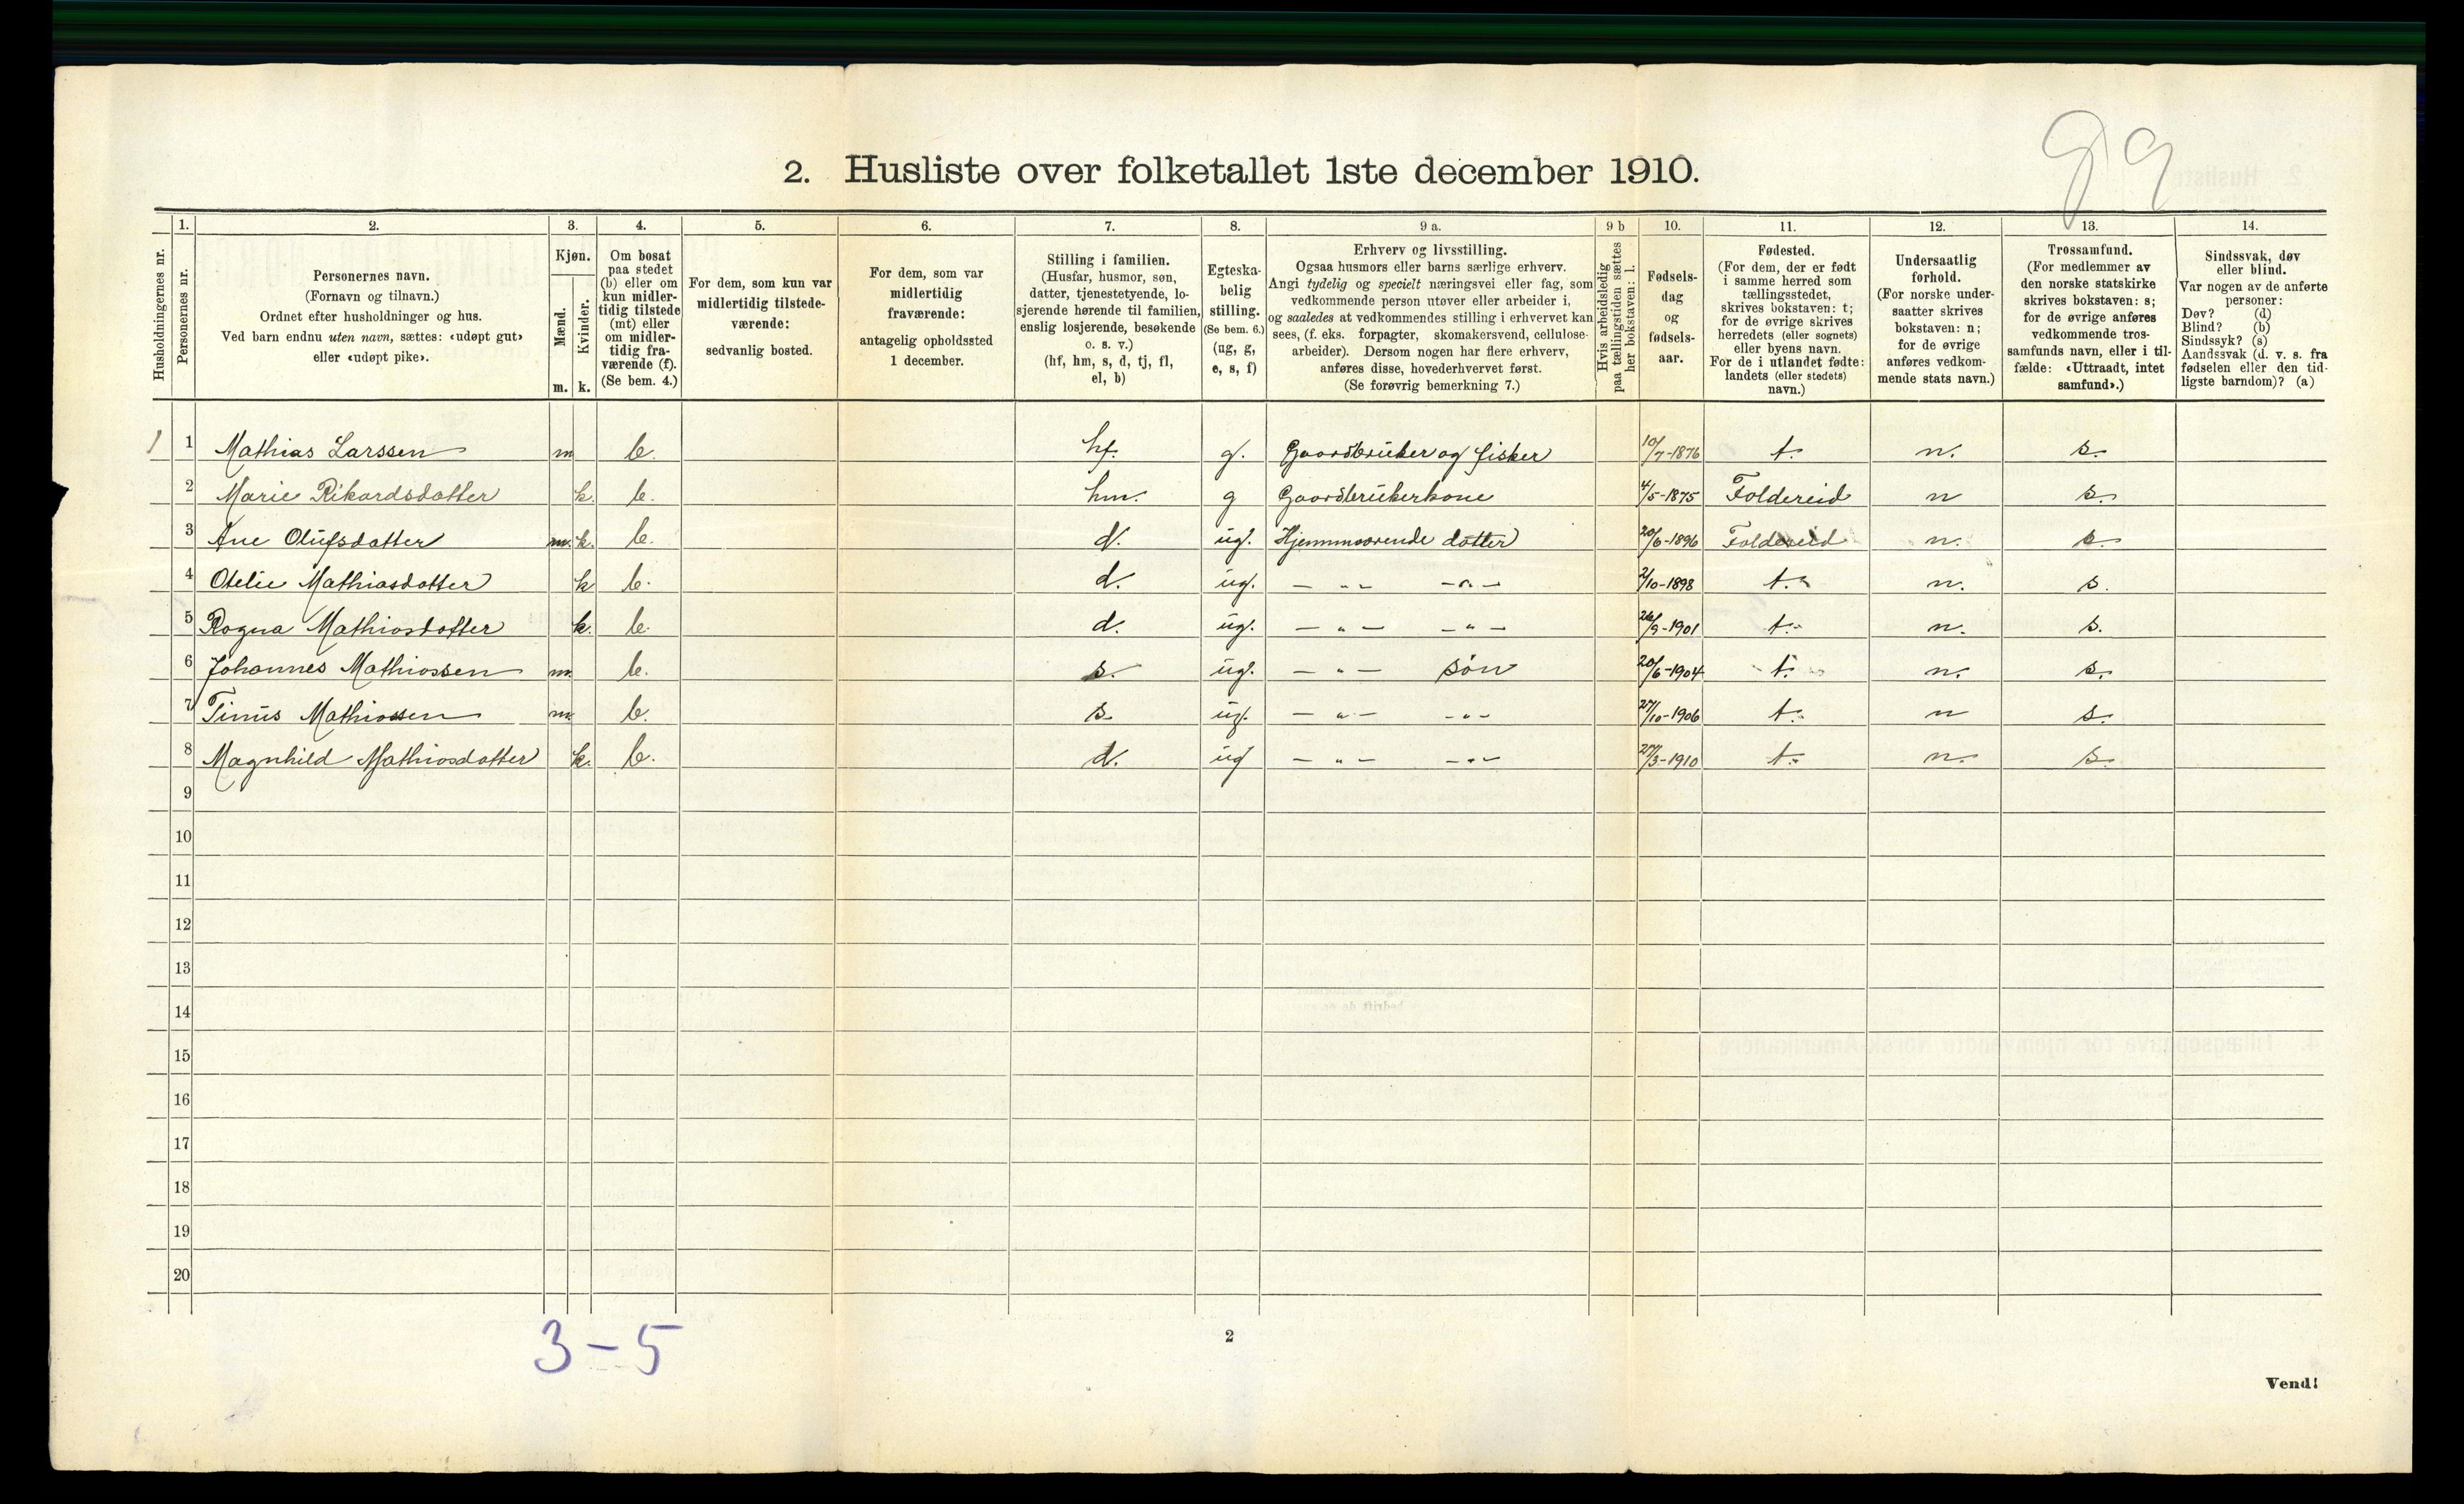 89
2. Husliste over folketallet 1ste december 1910.
Husholdningernes nr.
1.
Personernes nr.
2.
Personernes navn.
(Fornavn og tilnavn.)
Ordnet efter husholdninger og hus.
Ved barn endnu uten navn, sættes: «udøpt gut»
eller «udøpt pike».
3.
Kjøn.
Mænd.
Kvinder.
m. k.
4.
Om bosat
paa stedet
(b) eller om
kun midler-
tidig tilstede
(mt) eller
om midler-
tidig fra-
værende (f).
(Se bem. 4.)
5.
For dem, som kun var
midlertidig tilstede-
værende:
sedvanlig bosted.
6.
For dem, som var
midlertidig
fraværende:
antagelig opholdssted
1 december.
7.
Stilling i familien.
(Husfar, husmor, søn,
datter, tjenestetyende, lo-
sjerende hørende til familien,
enslig losjerende, besøkende
o. s. v.)
(hf, hm, s, d, tj, fl,
el, b)
8.
Egteska-
belig
stilling.
(Se bem. 6.)
(ug, g,
e, s, f)
9 a.
Erhverv og livsstilling.
Ogsaa husmors eller barns særlige erhverv.
Angi tydelig og specielt næringsvei eller fag, som
vedkommende person utøver eller arbeider i,
og saaledes at vedkommendes stilling i erhvervet kan
sees, (f. eks. forpagter, skomakersvend, cellulose-
arbeider). Dersom nogen har flere erhverv,
anføres disse, hovederhvervet først.
(Se forøvrig bemerkning 7.)
9 b
Hvis arbeidsledig
paa tællingstiden sættes
her bokstaven: l.
10.
Fødsels-
dag
og
fødsels-
aar.
11.
Fødested.
(For dem, der er født
i samme herred som
tællingsstedet,
skrives bokstaven: t;
for de øvrige skrives
herredets (eller sognets)
eller byens navn.
For de i utlandet fødte:
landets (eller stedets)
navn.)
12.
Undersaatlig
forhold.
(For norske under-
saatter skrives
bokstaven: n;
for de øvrige
anføres vedkom-
mende stats navn.)
13.
Trossamfund.
(For medlemmer av
den norske statskirke
skrives bokstaven: s;
for de øvrige anføres
vedkommende tros-
samfunds navn, eller i til-
fælde: «Uttraadt, intet
samfund».)
14.
Sindssvak, døv
eller blind.
Var nogen av de anførte
personer:
Døv? (d)
Blind? (b)
Sindssyk? (s)
Aandssvak (d. v. s. fra
fødselen eller den tid-
ligste barndom)? (a)
1 1 Mathias Larssen m b. hf. g. Gaardbruker og fisker 10/7-1876 t. n. s.
2 Marie Rikardsdatter k. b. hm. g Gaardbrukerkone 4/5-1875 Foldereid n s.
3 Ane Olufsdatter m. k. b. d. ug. Hjemmværende datter 20/6-1896 Foldereid n. s.
4 Otelie Mathiasdatter k b. d. ug. — „ — — „ — 2/10-1898 t. n. s.
5 Ragna Mathiasdatter k. b. d. ug. — „ — — „ — 26/9-1901 t. n. s.
6 Johannes Mathiassen m. b. s. ug. — „ — søn 20/6-1904 t. n. s.
7 Tinus Mathiassen m b. s. ug. — „ — — „ — 27/10-1906 t. n s.
8 Magnhild Mathiasdatter k. b. d. ug — „ — — „ — 27/3-1910 t. n. s.
9
10
11
12
13
14
15
16
17
18
19
20
3 – 5
2
Vend!